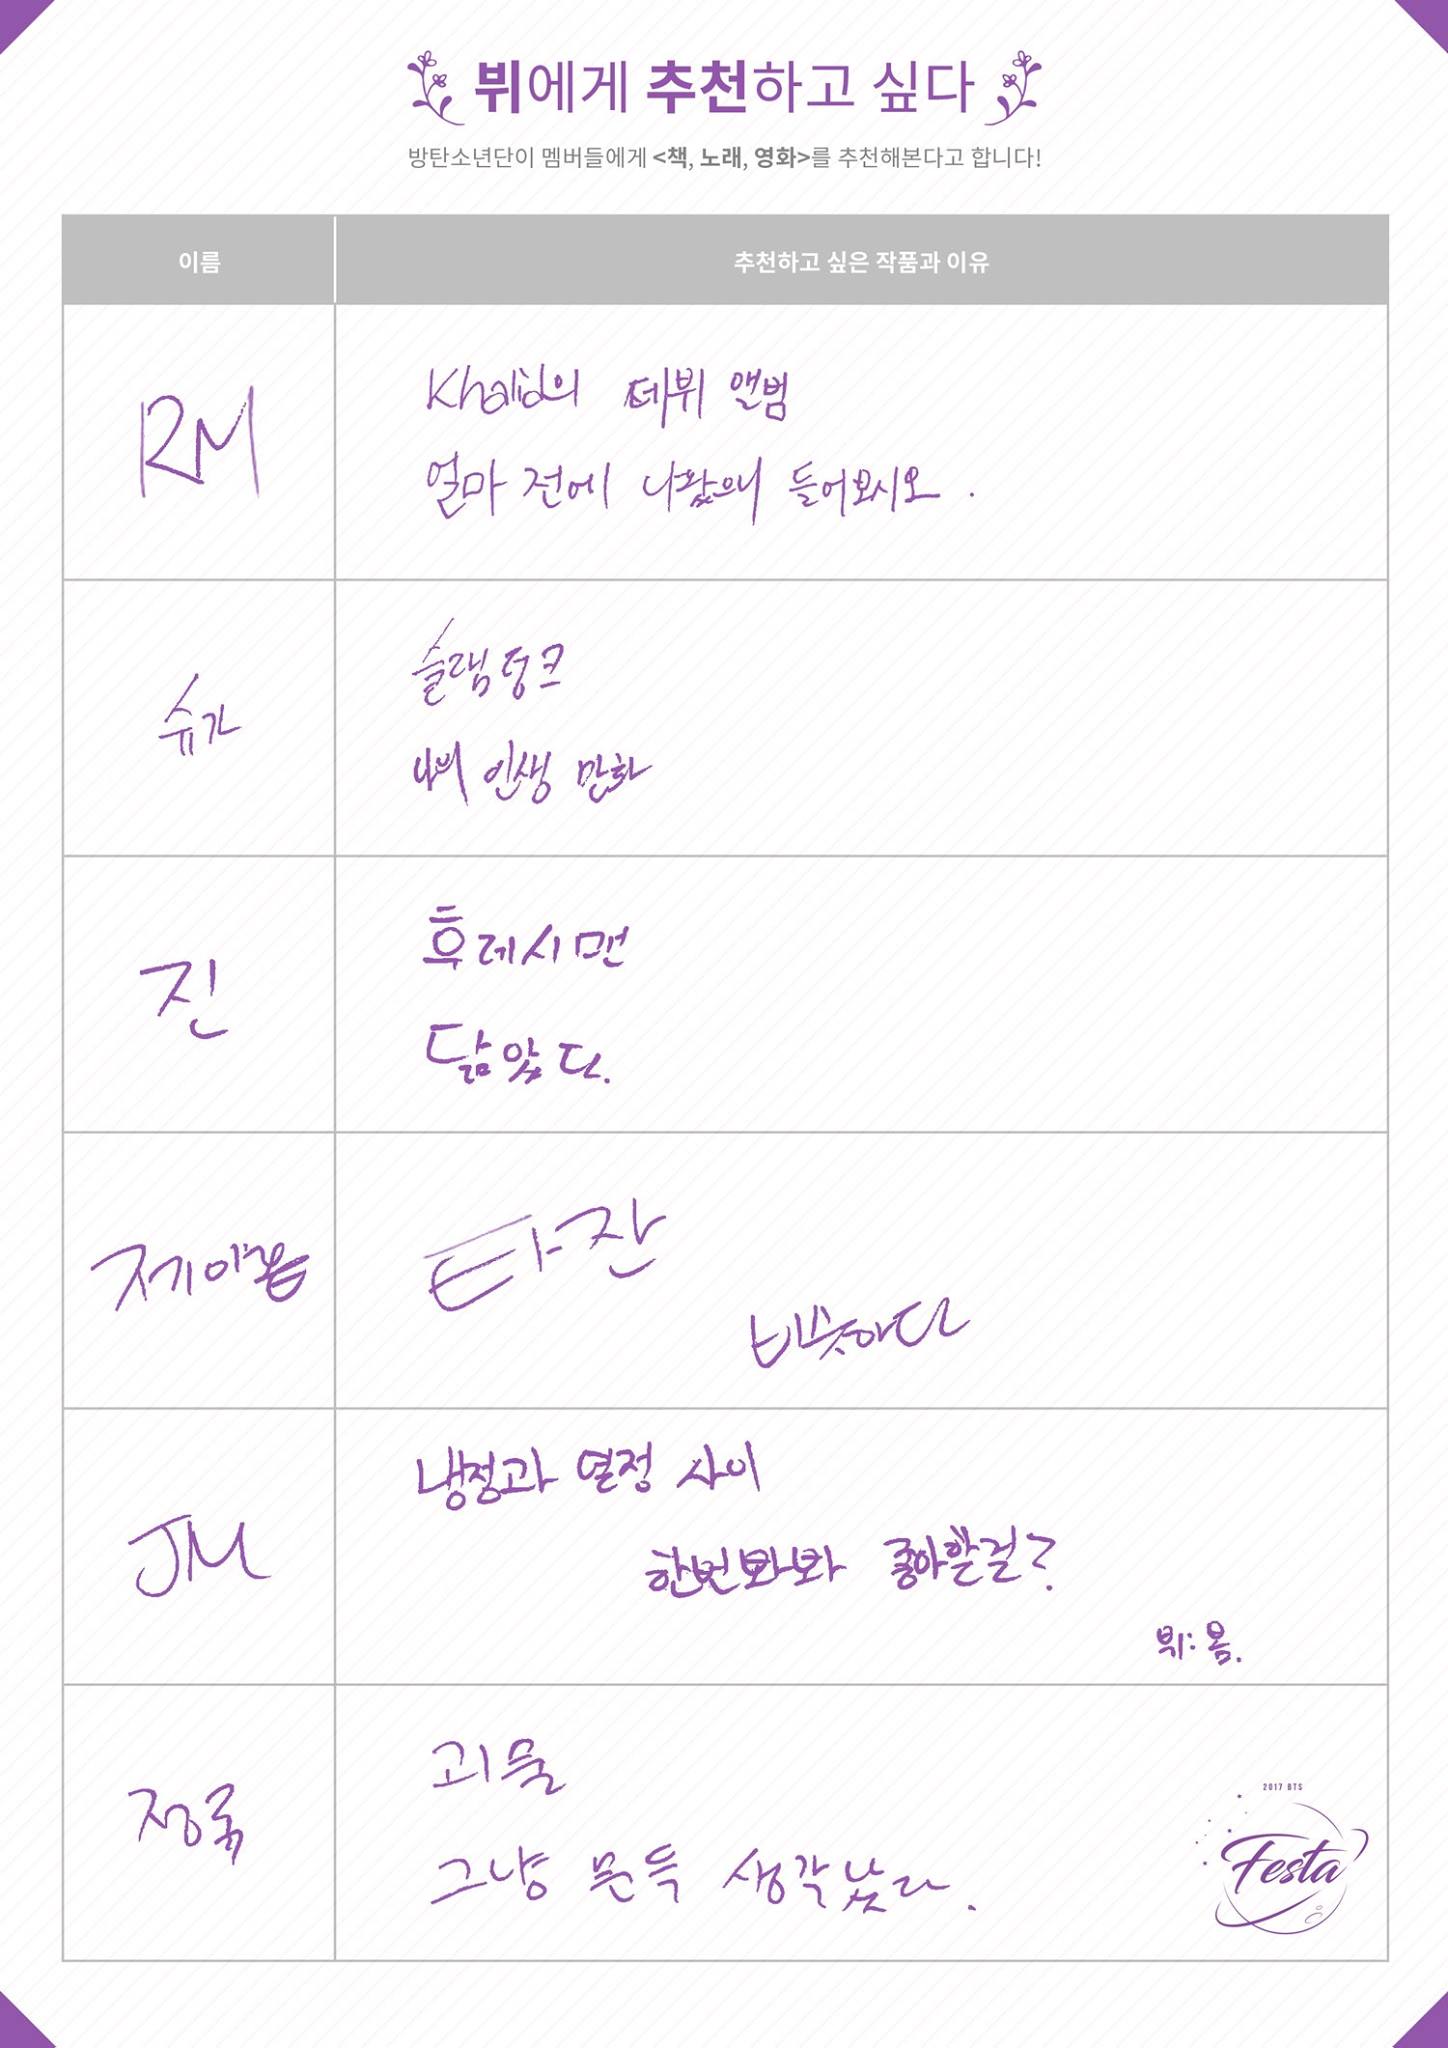 뷔에게 추천하고 싶다
방탄소년단이 멤버들에게 <책, 노래, 영화>를 추천해본다고 합니다!
이름
추천하고 싶은 작품과 이유
RM
Khalid의 데뷔 앨범
얼마 전에 나왔으니 들어보시오.
슈가
슬램덩크
내 인생 만화
진
후레시맨
닮았다.
제이홉
타잔
비슷하다
JM
냉정과 열정 사이
한번봐봐 좋아할걸?
뷔: 봄.
정국
괴물
그냥 문득 생각났다.
2017 BTS
Festa